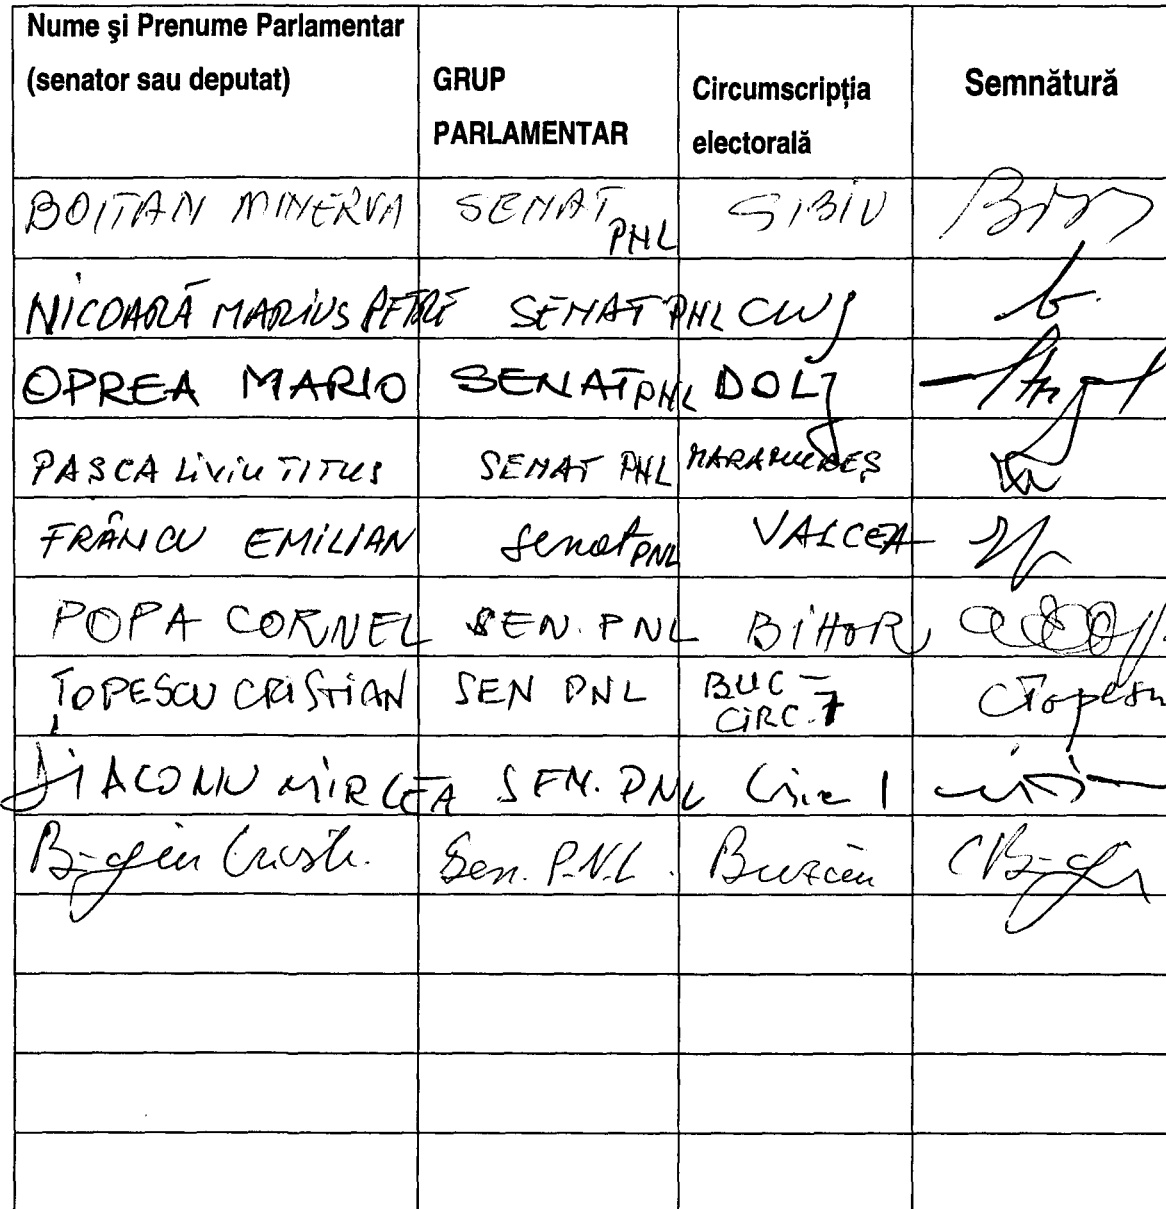 Nume și Prenume Parlamentar
(senator sau deputat)
GRUP
PARLAMENTAR
Circumscripția
electorală
Semnătură
BOITAN MINERVA SENAT PNL SIBIU
NICOARĂ MARIUS PETRE SENAT PNL CLUJ
OPREA MARIO SENAT PNL DOLJ
PASCA LIVIU TITUS SENAT PNL MARAMUREȘ
FRÂNCU EMILIAN Senat PNL VALCEA
POPA CORNEL SEN. PNL BIHOR
ȚOPESCU CRISTIAN SEN PNL BUC - CIRC. 7 CȚopescu
DIACONU MIRCEA SEN. PNL Circ 1
Sen. P.N.L. Buzău